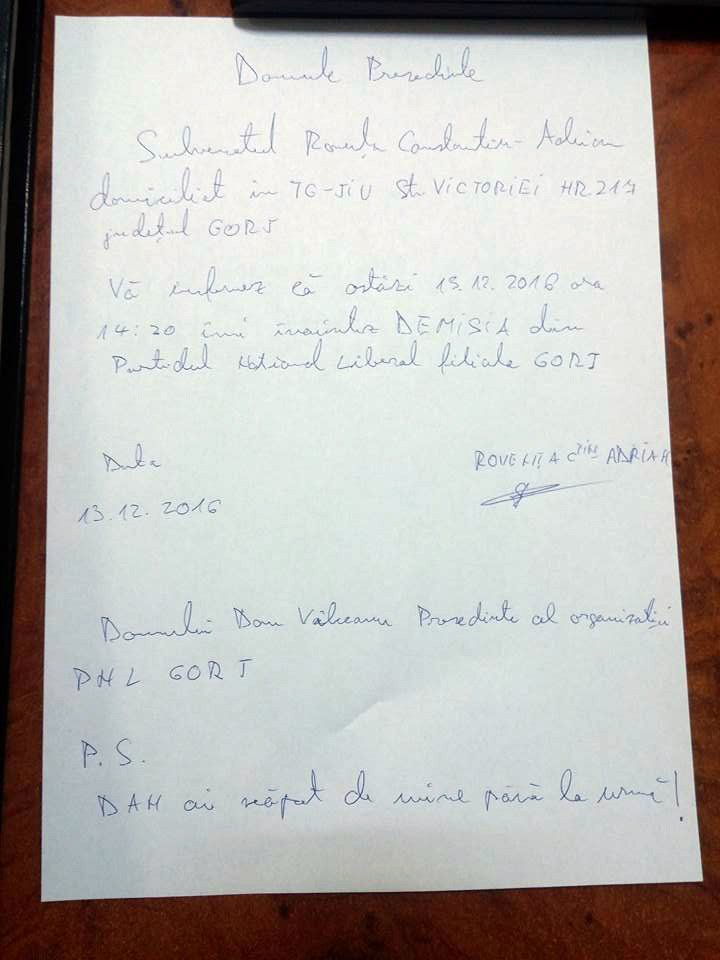 Domnule Președinte
Subsemnatul Rovența Constantin-Adrian
domiciliat în TG-JIU Str. VICTORIEI NR 217
județul GORJ
Vă informez că astăzi 13.12.2016 ora
14:20 îmi înaintez DEMISIA din
Partidul Național Liberal filiala GORJ
Data
ROVENȚA CTIN ADRIAN
13.12.2016
Domnului Dan Vâlceanu Președinte al organizației
PNL GORJ
P.S.
DAN ai scăpat de mine până la urmă!